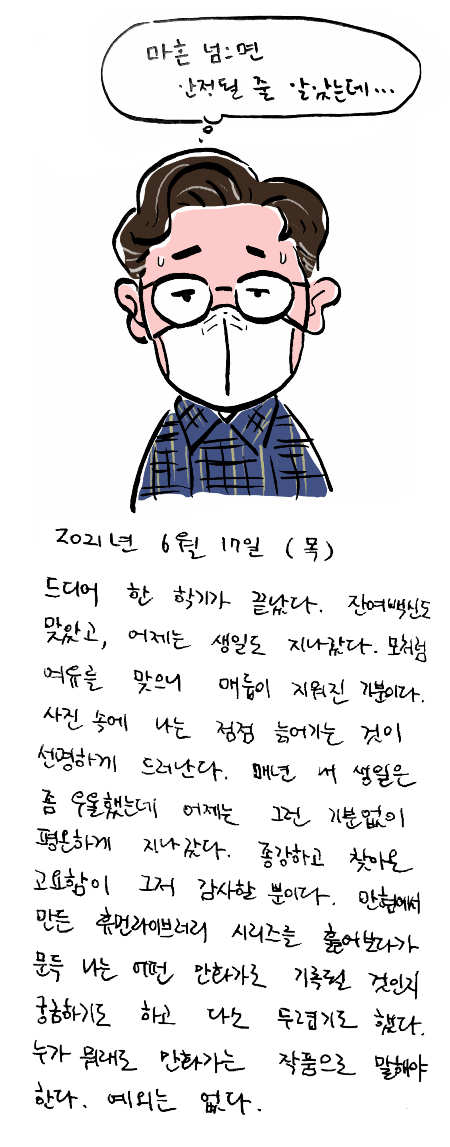 마흔 넘으면
안정될 줄 알았는데...
2021년 6월 17일 (목)
드디어 한 학기가 끝났다. 잔여백신도
맞았고, 어제는 생일도 지나갔다. 모처럼
여유를 맞으니 매듭이 지워진 기분이다.
사진 속에 나는 점점 늙어가는 것이
선명하게 드러난다. 매년 내 생일은
좀 우울했는데 어제는 그런 기분없이
평온하게 지나갔다. 종강하고 찾아온
고요함이 그저 감사할 뿐이다. 만협에서
만든 휴먼라이브러리 시리즈를 훑어보다가
문득 나는 어떤 만화가로 기록될 것인지
궁금하기도 하고 다소 두렵기도 했다.
누가 뭐래도 만화가는 작품으로 말해야
한다. 예외는 없다.